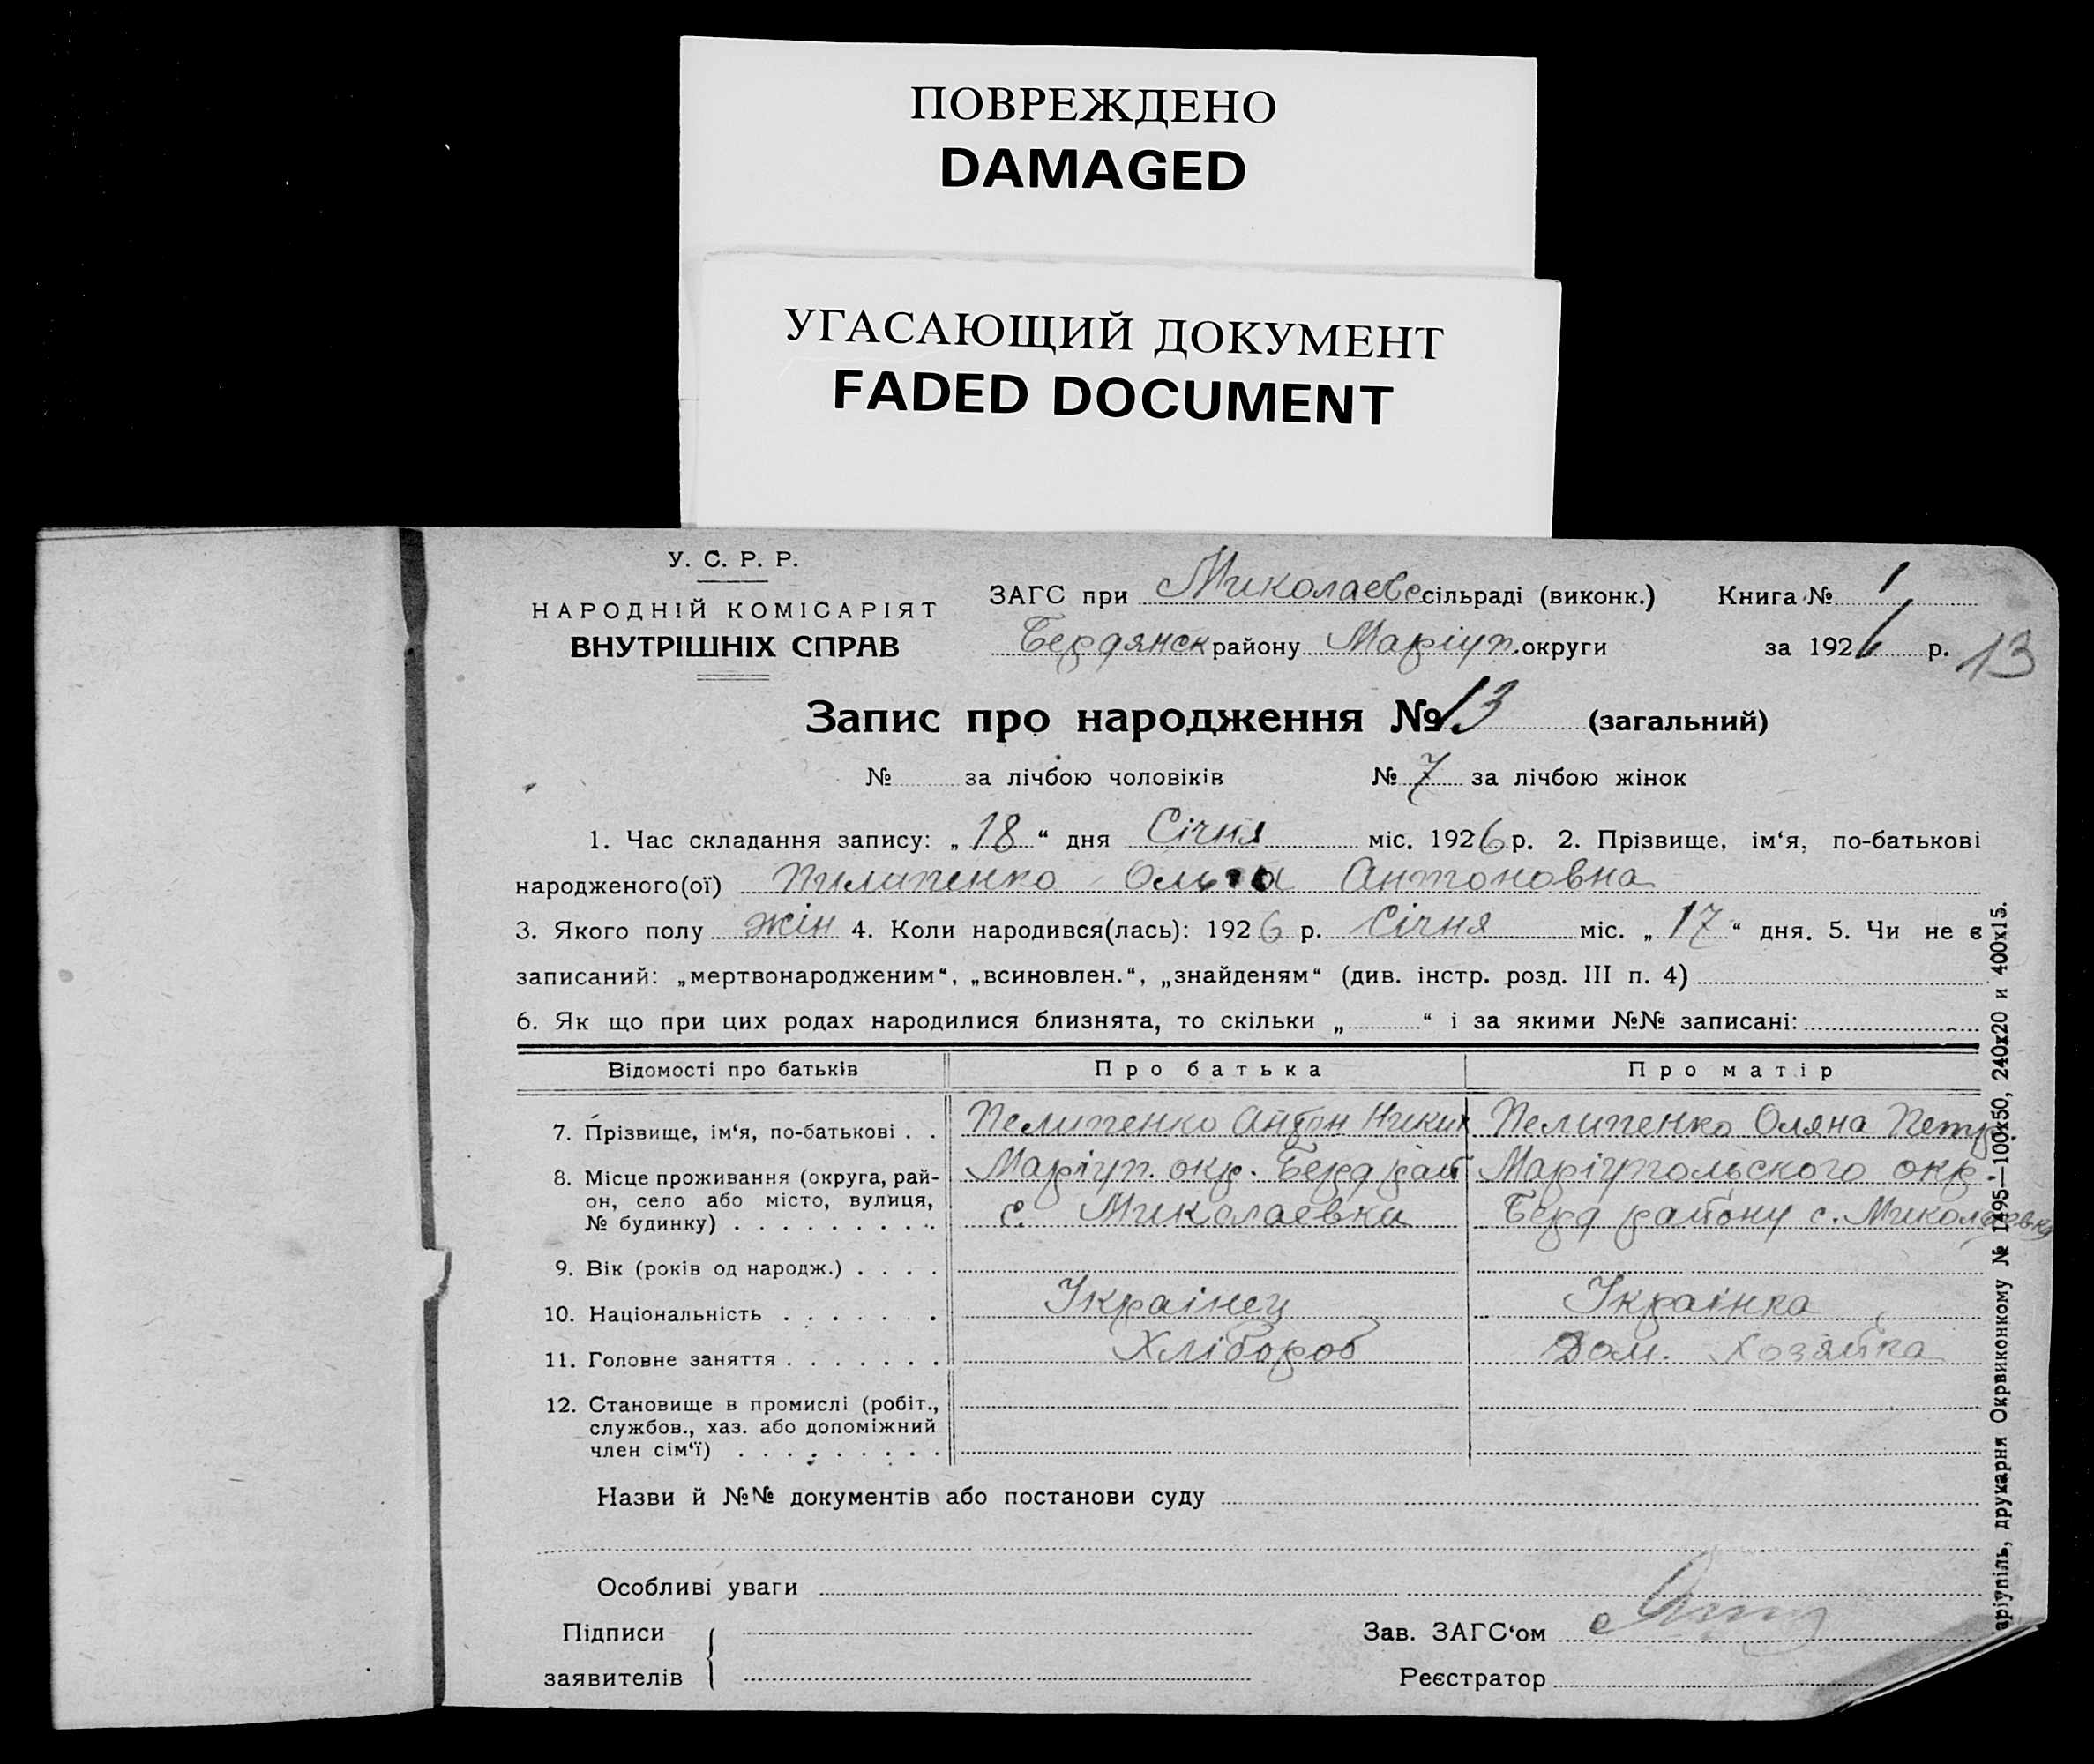 ПОВРЕЖДЕНО
DAMAGED
УГАСАЮЩИЙ ДОКУМЕНТ
FADED DOCUMENT
У. С. Р. Р.
НАРОДНІЙ КОМІСАРІЯТ
ВНУТРІШНІХ СПРАВ
ЗАГС при Миколаевс сільраді (виконк.) Книга № 1
Бердянск району Маріуп. округи за 1926 р. 13
Запис про народження № 13 (загальний)
№ за лічбою чоловіків № 7 за лічбою жінок
1. Час складання запису: „18“ дня Січня міс. 1926 р. 2. Прізвище, ім‘я, по-батькові
народженого(ої) Пилипенко Ольга Антоновна
3. Якого полу жін 4. Коли народився(лась): 1926 р. Січня міс. „17“ дня. 5. Чи не є
записаний: „мертвонародженим“, „всиновлен.“, „знайденям“ (див. інстр. розд. III п. 4)
6. Як що при цих родах народилися близнята, то скільки „ “ і за якими №№ записані:
Відомості про батьків Про батька Про матір
7. Прізвище, ім‘я, по-батькові . . Пелипенко Антон Никит Пелипенко Оляна Петр.
8. Місце проживання (округа, рай- Маріуп. окр. Берд рай Маріупольского окр.
он, село або місто, вулиця, с. Миколаевка Берд району с. Миколаевка
№ будинку) . . . . . . . . .
9. Вік (років од народж.) . . . .
10. Національність . . . . . . . Українец Українка
11. Головне заняття . . . . . . . Хлібороб Дом. Хозяйка
12. Становище в промислі (робіт.,
службов., хаз. або допоміжний
член сім‘ї) . . . . . . . . .
Назви й №№ документів або постанови суду
Особливі уваги
Підписи
заявителів
Зав. ЗАГС‘ом
Реєстратор
аріупіль, друкарня Окрвиконкому № 1495—100х50, 240х20 и 400х15.